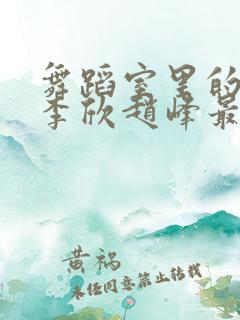 舞蹈室里的
李欣赵峰最
黄祸
未经同意禁止转载